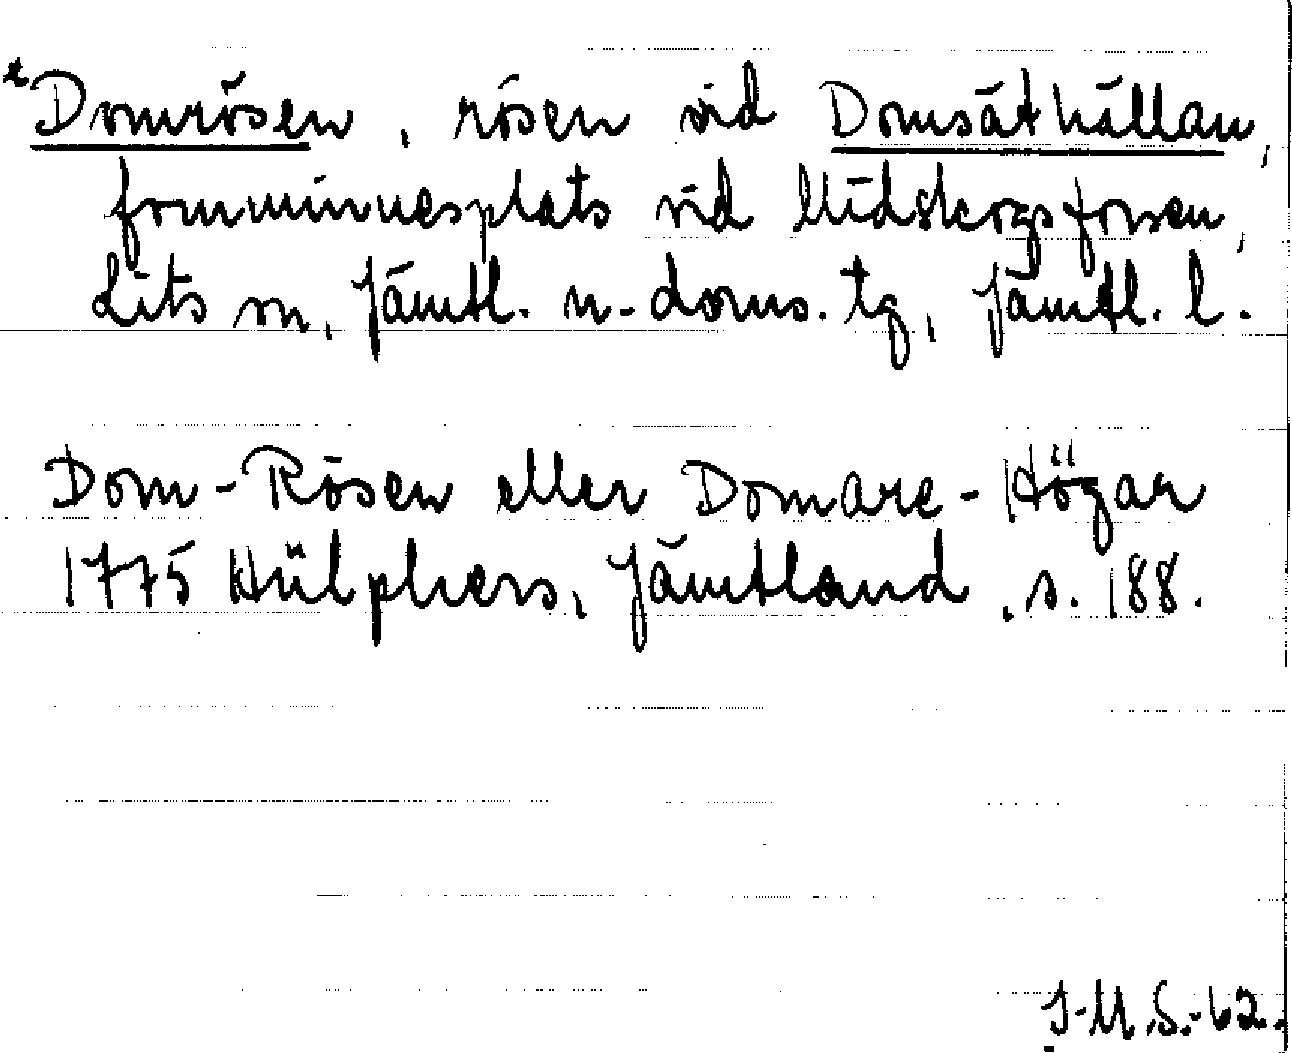 Domrösen, rösen vid Domsäthällan,
fornminnesplats vid Midskogsforsen,
Lits sn, Jämtl. n. doms. tg, Jämtl. l.
Dom-Rösen eller Domare-Högar
1775 Hülphers, Jämtland, s. 188.
J-M.S.-62.